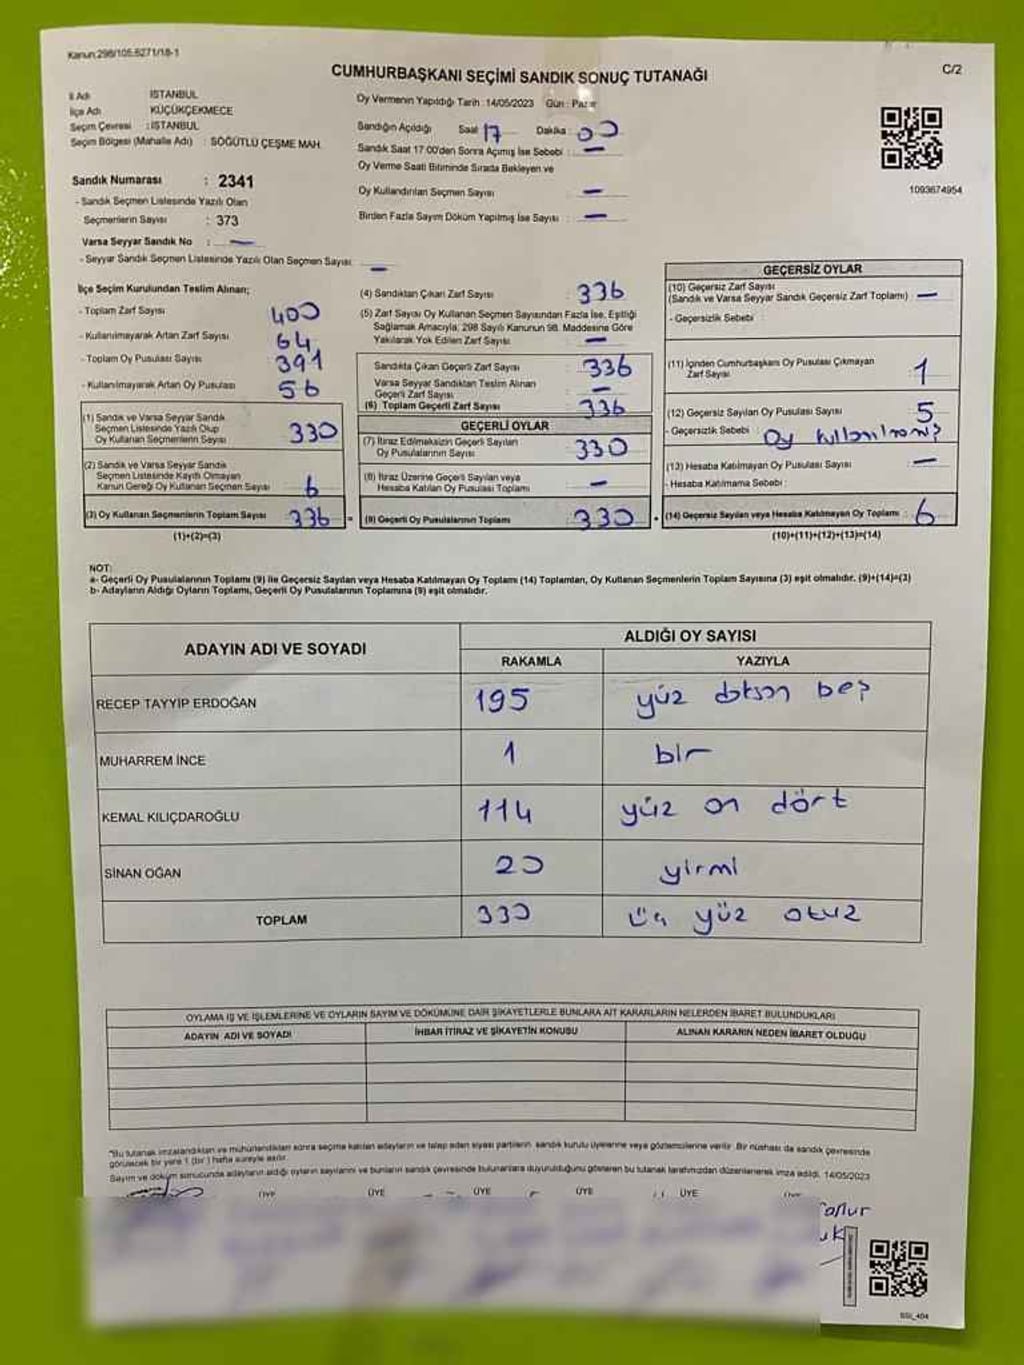 Kanun:298/105.6271/18-1
CUMHURBAŞKANI SEÇİMİ SANDIK SONUÇ TUTANAĞI
C/2
İl Adı İSTANBUL
İlçe Adı KÜÇÜKÇEKMECE
Seçim Çevresi : İSTANBUL
Seçim Bölgesi (Mahalle Adı) : SÖĞÜTLÜ ÇEŞME MAH.
Sandık Numarası : 2341
- Sandık Seçmen Listesinde Yazılı Olan
Seçmenlerin Sayısı : 373
Varsa Seyyar Sandık No : —
- Seyyar Sandık Seçmen Listesinde Yazılı Olan Seçmen Sayısı: —
Oy Vermenin Yapıldığı Tarih :14/05/2023 Gün : Pazar
Sandığın Açıldığı Saat 17 Dakika : 00
Sandık Saat 17:00'den Sonra Açımış İse Sebebi : —
Oy Verme Saati Bitiminde Sırada Bekleyen ve
Oy Kullandırılan Seçmen Sayısı —
Birden Fazla Sayım Döküm Yapılmış İse Sayısı : —
1093674954
İlçe Seçim Kurulundan Teslim Alınan;
- Toplam Zarf Sayısı 400
- Kullanılmayarak Artan Zarf Sayısı 64
- Toplam Oy Pusulası Sayısı 391
- Kullanılmayarak Artan Oy Pusulası 56
(1) Sandık ve Varsa Seyyar Sandık
Seçmen Listesinde Yazılı Olup
Oy Kullanan Seçmenlerin Sayısı 330
(2) Sandık ve Varsa Seyyar Sandık
Seçmen Listesinde Kayıtlı Olmayan
Kanun Gereği Oy Kullanan Seçmen Sayısı 6
(3) Oy Kullanan Seçmenlerin Toplam Sayısı 336 =
(1)+(2)=(3)
(4) Sandıktan Çıkan Zarf Sayısı 336
(5) Zarf Sayısı Oy Kullanan Seçmen Sayısından Fazla İse, Eşitliği
Sağlamak Amacıyla; 298 Sayılı Kanunun 98. Maddesine Göre
Yakılarak Yok Edilen Zarf Sayısı —
Sandıkta Çıkan Geçerli Zarf Sayısı 336
Varsa Seyyar Sandıktan Teslim Alınan
Geçerli Zarf Sayısı —
(6) Toplam Geçerli Zarf Sayısı 336
GEÇERLİ OYLAR
(7) İtiraz Edilmeksizin Geçerli Sayılan
Oy Pusulalarının Sayısı 330
(8) İtiraz Üzerine Geçerli Sayılan veya
Hesaba Katılan Oy Pusulası Toplamı —
(9) Geçerli Oy Pusulalarının Toplamı 330
GEÇERSİZ OYLAR
(10) Geçersiz Zarf Sayısı
(Sandık ve Varsa Seyyar Sandık Geçersiz Zarf Toplamı) —
- Geçersizlik Sebebi
(11) İçinden Cumhurbaşkanı Oy Pusulası Çıkmayan
Zarf Sayısı 1
(12) Geçersiz Sayılan Oy Pusulası Sayısı 5
- Geçersizlik Sebebi : Oy
(13) Hesaba Katılmayan Oy Pusulası Sayısı —
- Hesaba Katılmama Sebebi :
(14) Geçersiz Sayılan veya Hesaba Katılmayan Oy Toplamı : 6
(10)+(11)+(12)+(13)=(14)
NOT:
a- Geçerli Oy Pusulalarının Toplamı (9) ile Geçersiz Sayılan veya Hesaba Katılmayan Oy Toplamı (14) Toplamları, Oy Kullanan Seçmenlerin Toplam Sayısına (3) eşit olmalıdır. (9)+(14)=(3)
b- Adayların Aldığı Oyların Toplamı, Geçerli Oy Pusulalarının Toplamına (9) eşit olmalıdır.
ADAYIN ADI VE SOYADI
ALDIĞI OY SAYISI
RAKAMLA YAZIYLA
RECEP TAYYİP ERDOĞAN 195 yüz doksan beş
MUHARREM İNCE 1 bir
KEMAL KILIÇDAROĞLU 114 yüz on dört
SİNAN OĞAN 20 yirmi
TOPLAM 330 üç yüz otuz
OYLAMA İŞ VE İŞLEMLERİNE VE OYLARIN SAYIM VE DÖKÜMÜNE DAİR ŞİKAYETLERLE BUNLARA AİT KARARLARIN NELERDEN İBARET BULUNDUKLARI
ADAYIN ADI VE SOYADI İHBAR İTİRAZ VE ŞİKAYETİN KONUSU ALINAN KARARIN NEDEN İBARET OLDUĞU
"Bu tutanak imzalandıktan ve mühürlendikten sonra seçime katılan adayların ve talep eden siyasi partilerin sandık kurulu üyelerine veya gözlemcilerine verilir. Bir nüshası da sandık çevresinde
görülecek bir yere 1 (bir) hafta süreyle asılır.
Sayım ve döküm sonucunda adayların aldığı oyların sayılarını ve bunların sandık çevresinde bulunanlara duyurulduğunu gösteren bu tutanak tarafımızdan düzenlenerek imza edildi. 14/05/2023
ÜYE ÜYE ÜYE ÜYE ÜYE